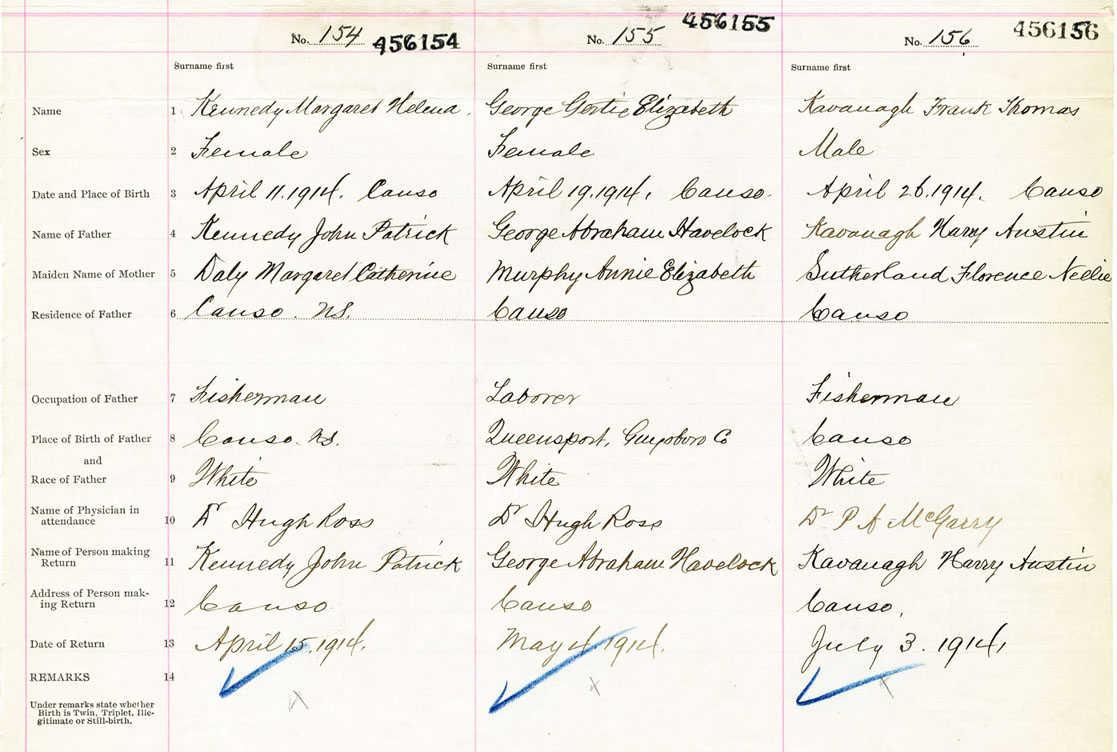 No. 154 456154 No. 155 456155 No. 156 456156
Surname first Surname first Surname first
Name 1 Kennedy Margaret Helena. George Gertie Elizabeth Kavanagh Frank Thomas
Sex 2 Female Female Male
Date and Place of Birth 3 April 11.1914. Canso April 19.1914. Canso. April 26.1914. Canso
Name of Father 4 Kennedy John Patrick George Abraham Havelock Kavanagh Harry Austin
Maiden Name of Mother 5 Daly Margaret Catherine Murphy Annie Elizabeth Sutherland Florence Nellie
Residence of Father 6 Canso. N.S. Canso Canso
Occupation of Father 7 Fisherman Laborer Fisherman
Place of Birth of Father 8 Canso. N.S. Queensport, Guysboro Co Canso
and
Race of Father 9 White White White
Name of Physician in
attendance 10 Dr Hugh Ross Dr Hugh Ross Dr P A McGarry
Name of Person making
Return 11 Kennedy John Patrick George Abraham Havelock Kavanagh Harry Austin
Address of Person mak-
ing Return 12 Canso. Canso Canso,
Date of Return 13 April 15.1914. May 4.1914. July 3.1914,
REMARKS 14
x x x
Under remarks state whether
Birth is Twin, Triplet, Ille-
gitimate or Still-birth.